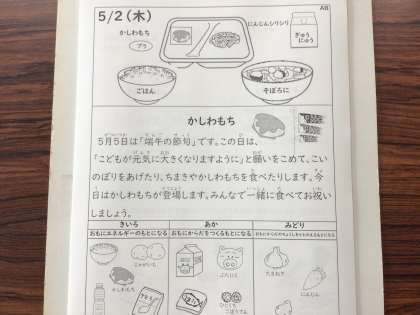 5/2(木)
AB
かしわもち
プラ
にんじんシリシリ
ぎゅうにゅう
ごはん
そぼろに
かしわもち
5月5日は「端午の節句」です。この日は、
「こどもが元気に大きくなりますように」と願いをこめて、こい
のぼりをあげたり、ちまきやかしわもちを食べたりします。今
日はかしわもちが登場します。みんなで一緒に食べてお祝い
しましょう。
きいろ
あか
みどり
おもにエネルギーのもとになる
おもにからだをつくるもとになる
おもにからだのちょうしをととのえるもとになる
じゃがいも
かしわもち
ぶたにく
たまねぎ
にんじん